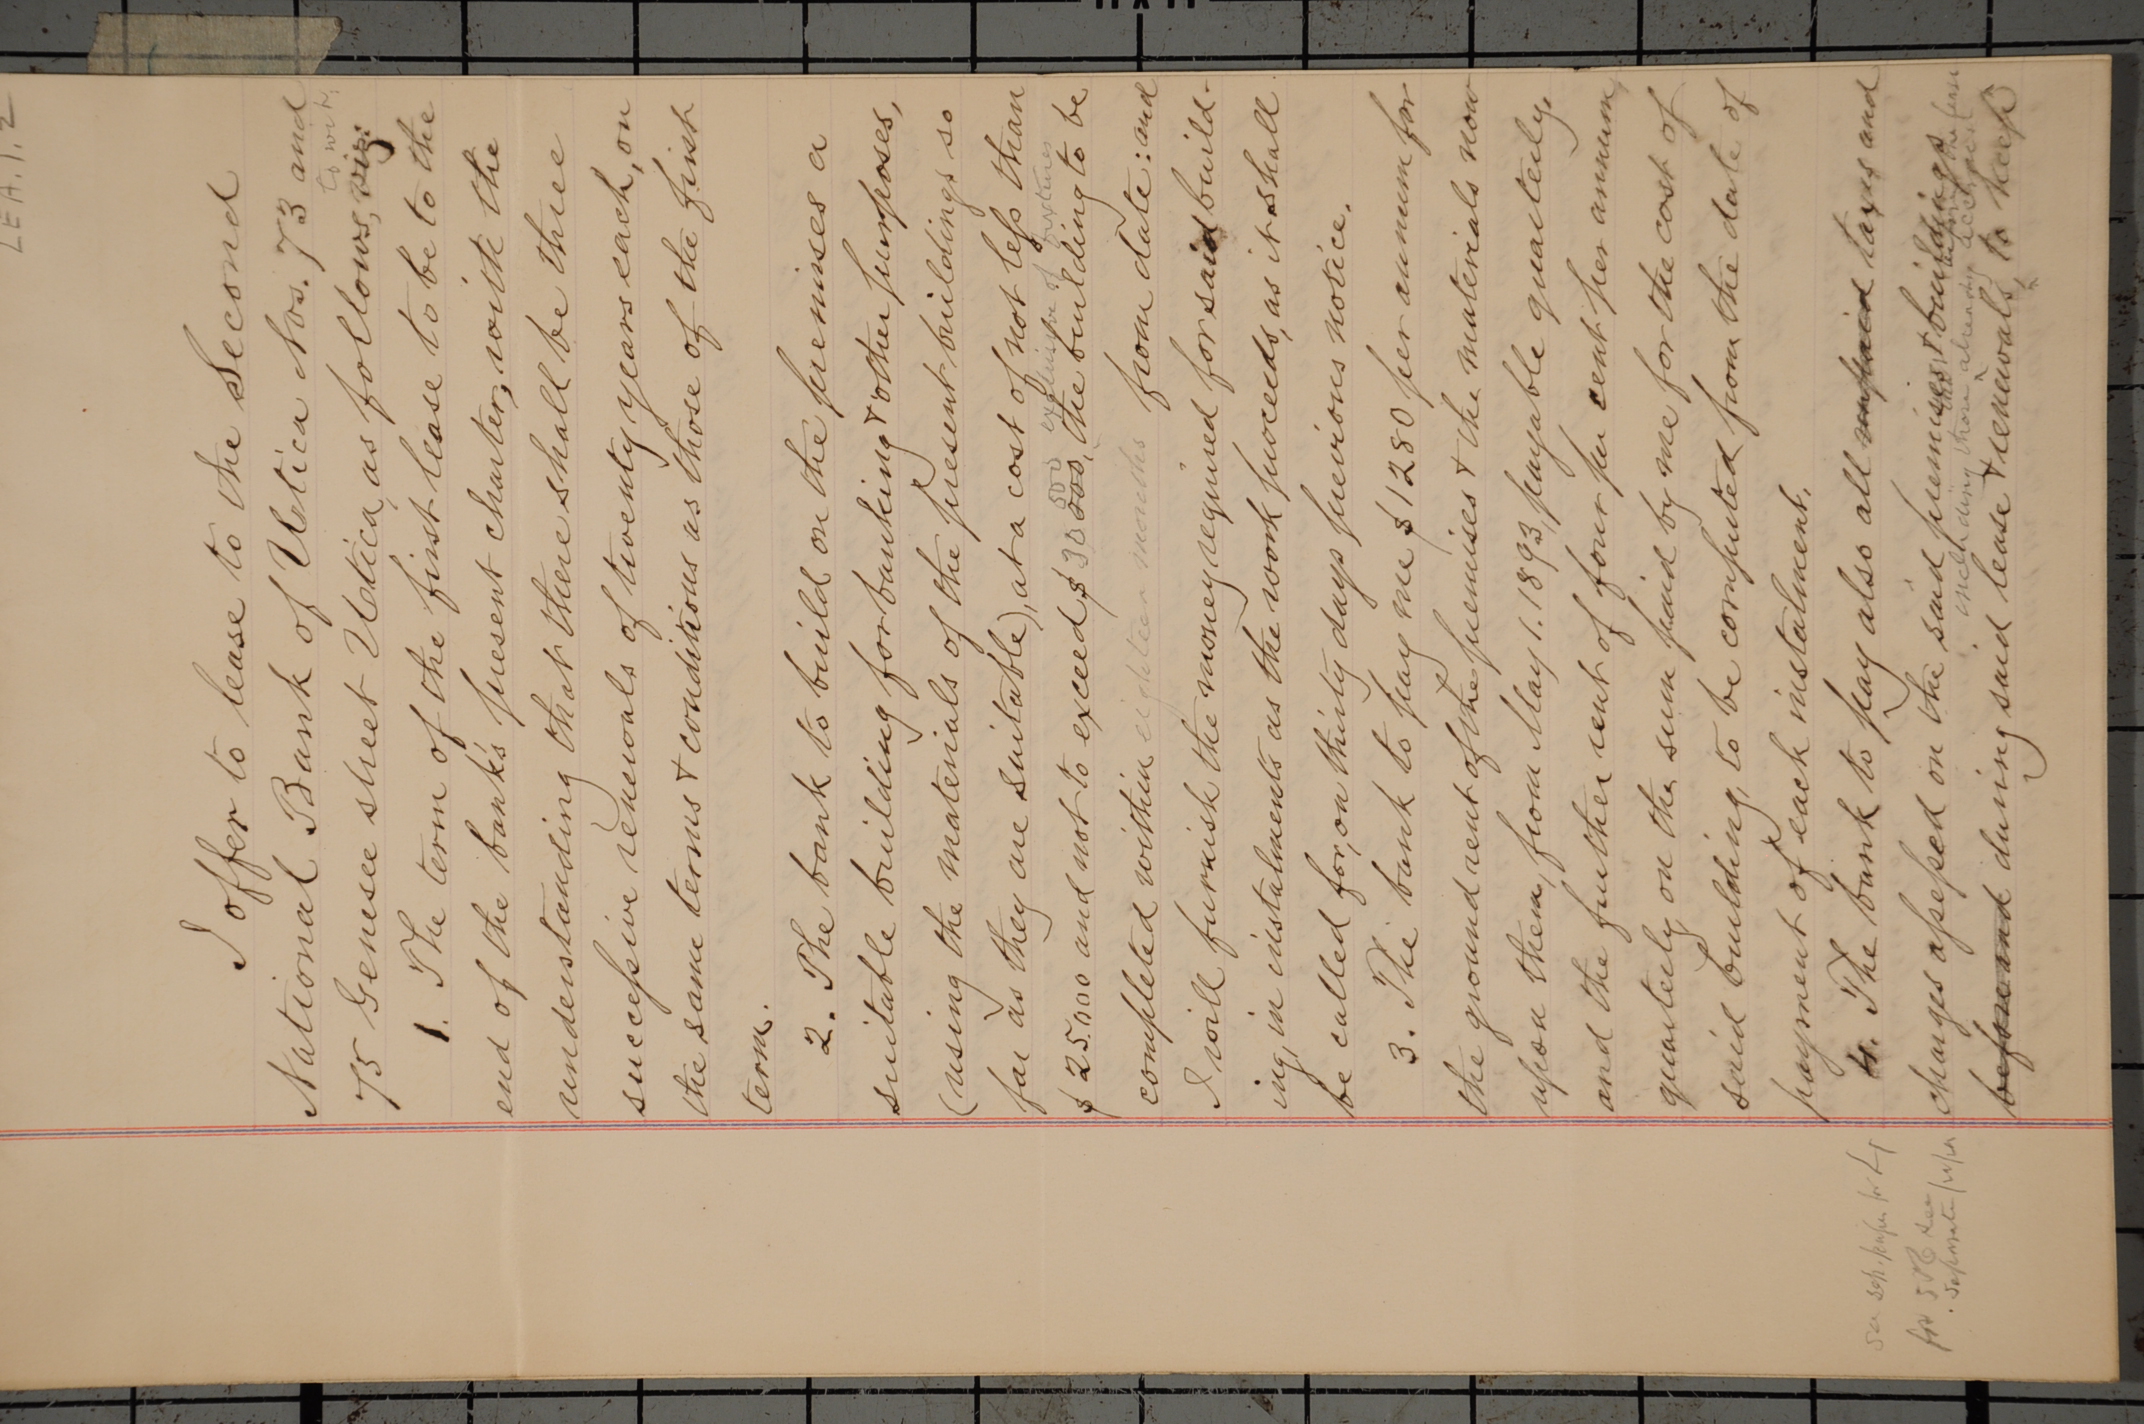 LEA.1.2
I offer to lease to the Second
National Bank of Utica Nos. 73 and
to wit,
75 Genesee street Utica, as follows, viz:
1. The term of the first lease to be to the
end of the bank's present charter, with the
understanding that there shall be three
successive renewals of twenty years each, on
the same terms & conditions as those of the first
term.
2. The bank to build on the premises a
suitable building for banking & other purposes,
(using the materials of the present buildings so
far as they are suitable), at a cost of not less than
500 exclusive of fixtures
$25.000 and not to exceed $30 000, the building to be
completed within eighteen months from date: and
I will furnish the money required for said build-
ing, in instalments as the work proceeds, as it shall
be called for, on thirty days previous notice.
3. The bank to pay me $1280 per annum for
the ground rent of the premises & the materials now
upon them, from May 1. 1893, payable quarterly,
and the further rent of four per cent per annum,
quarterly on the sum paid by me for the cost of
said building, to be computed from the date of
payment of each instalment.
4. The bank to pay also all unpaid taxes and
charges assessed on the said premises & buildings
including those already
before and during said lease & renewals, to keep
for 5th see
separate paper